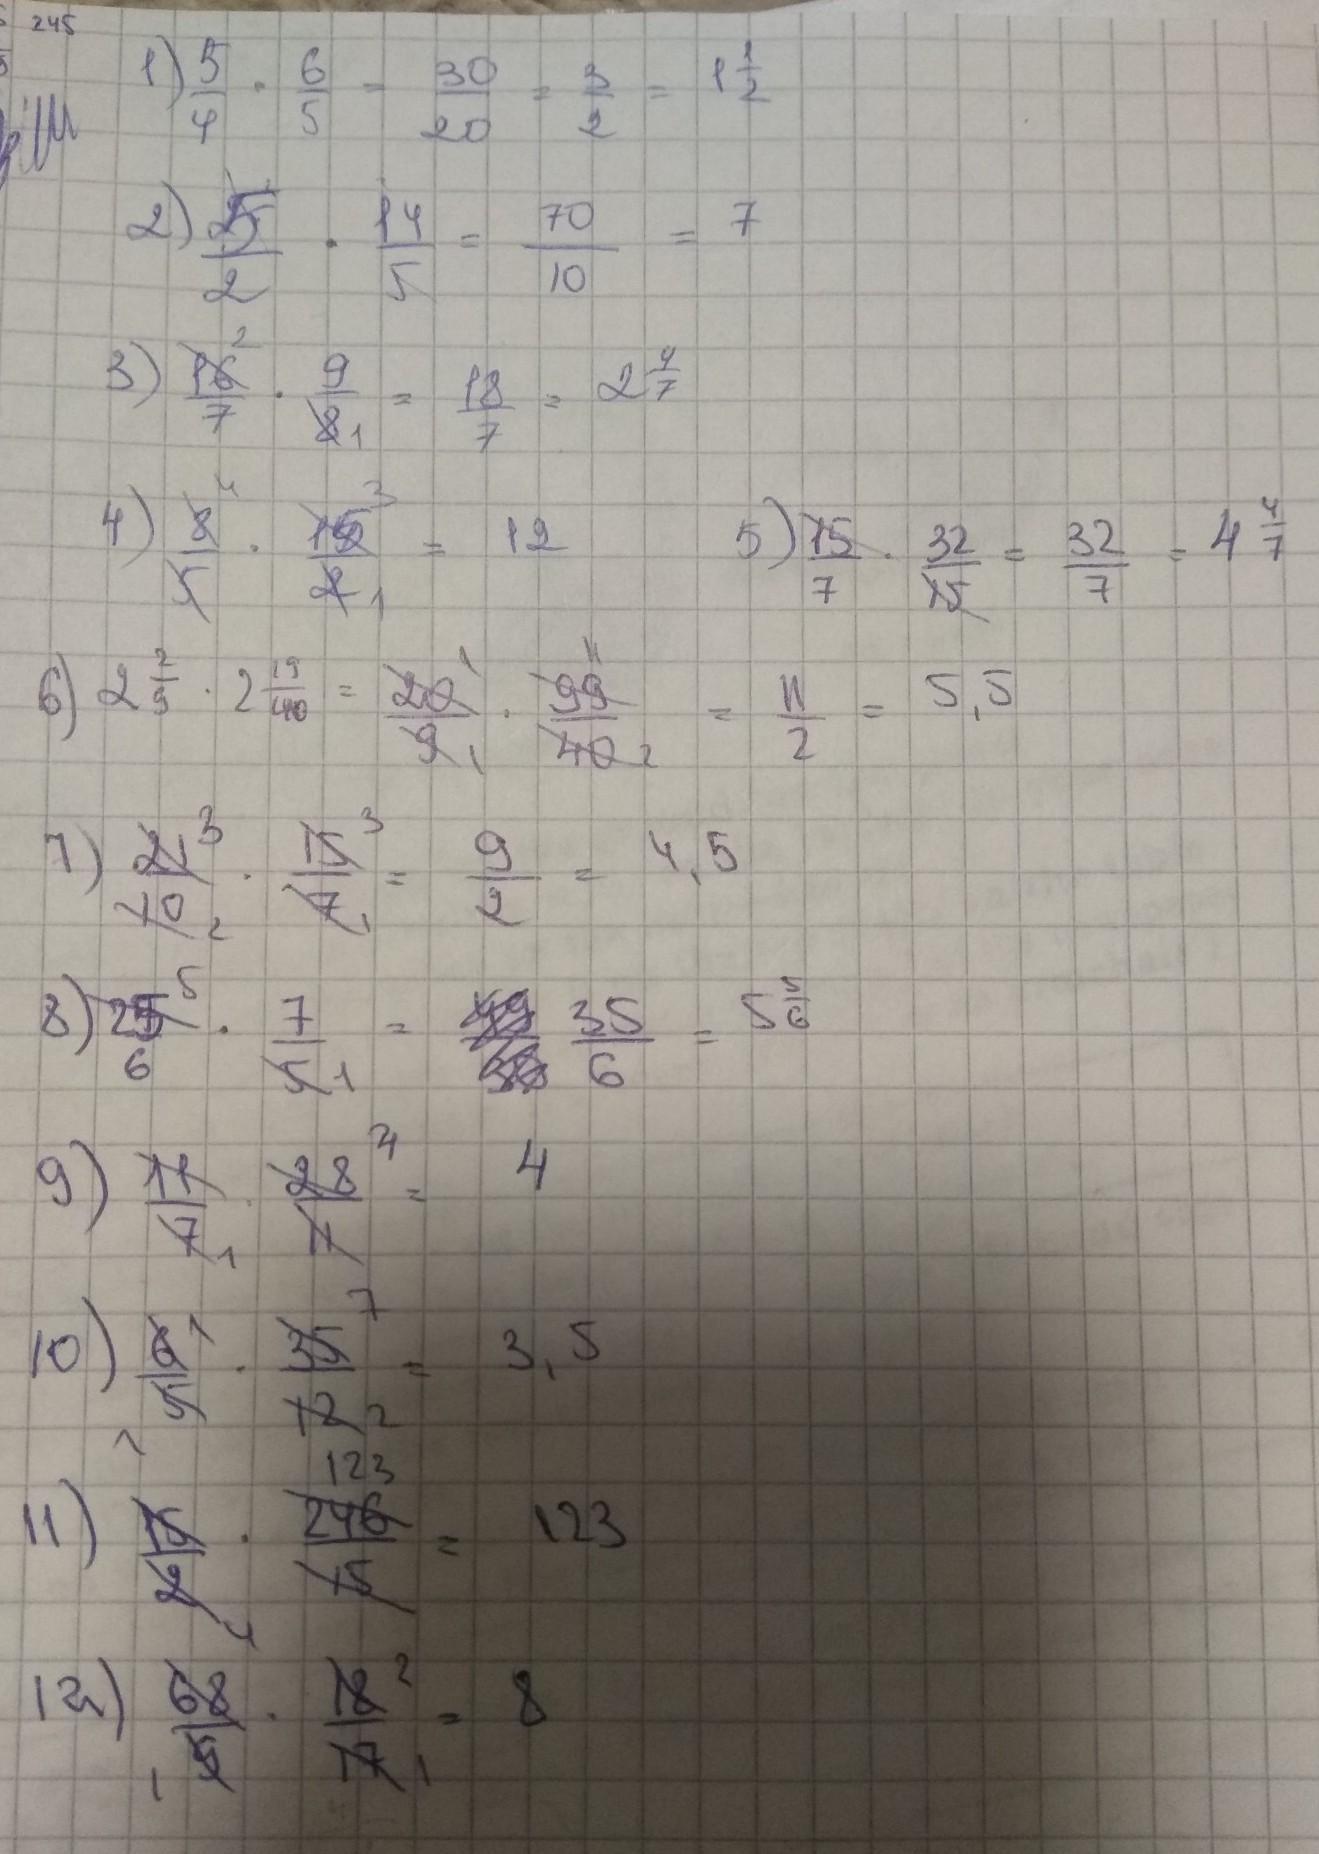 245
1) 5/4 · 6/5 = 30/20 = 3/2 = 1 1/2
2) 25/2 · 14/5 = 70/10 = 7
3) 16/7 ² · 9/8 1 = 18/7 = 2 4/7
4) 8/5 ⁴ · 15/2 ³ 1 = 12 5) 15/7 · 32/15 = 32/7 = 4 4/7
6) 2 2/9 · 2 19/40 = 20/9 ¹ 1 · 99/40 ¹¹ 2 = 11/2 = 5,5
7) 21/10 ³ 2 · 15/7 ³ 1 = 9/2 = 4,5
8) 25/6 ⁵ · 7/5 1 = 35/6 = 5 5/6
9) 11/7 1 · 28/7 ⁴ = 4
10) 6/5 ¹ · 35/12 ⁷ 2 = 3,5
11) 15/2 · 246/15 ¹²³ = 123
12) 68/9 ⁴ 1 · 18/17 ² 1 = 8